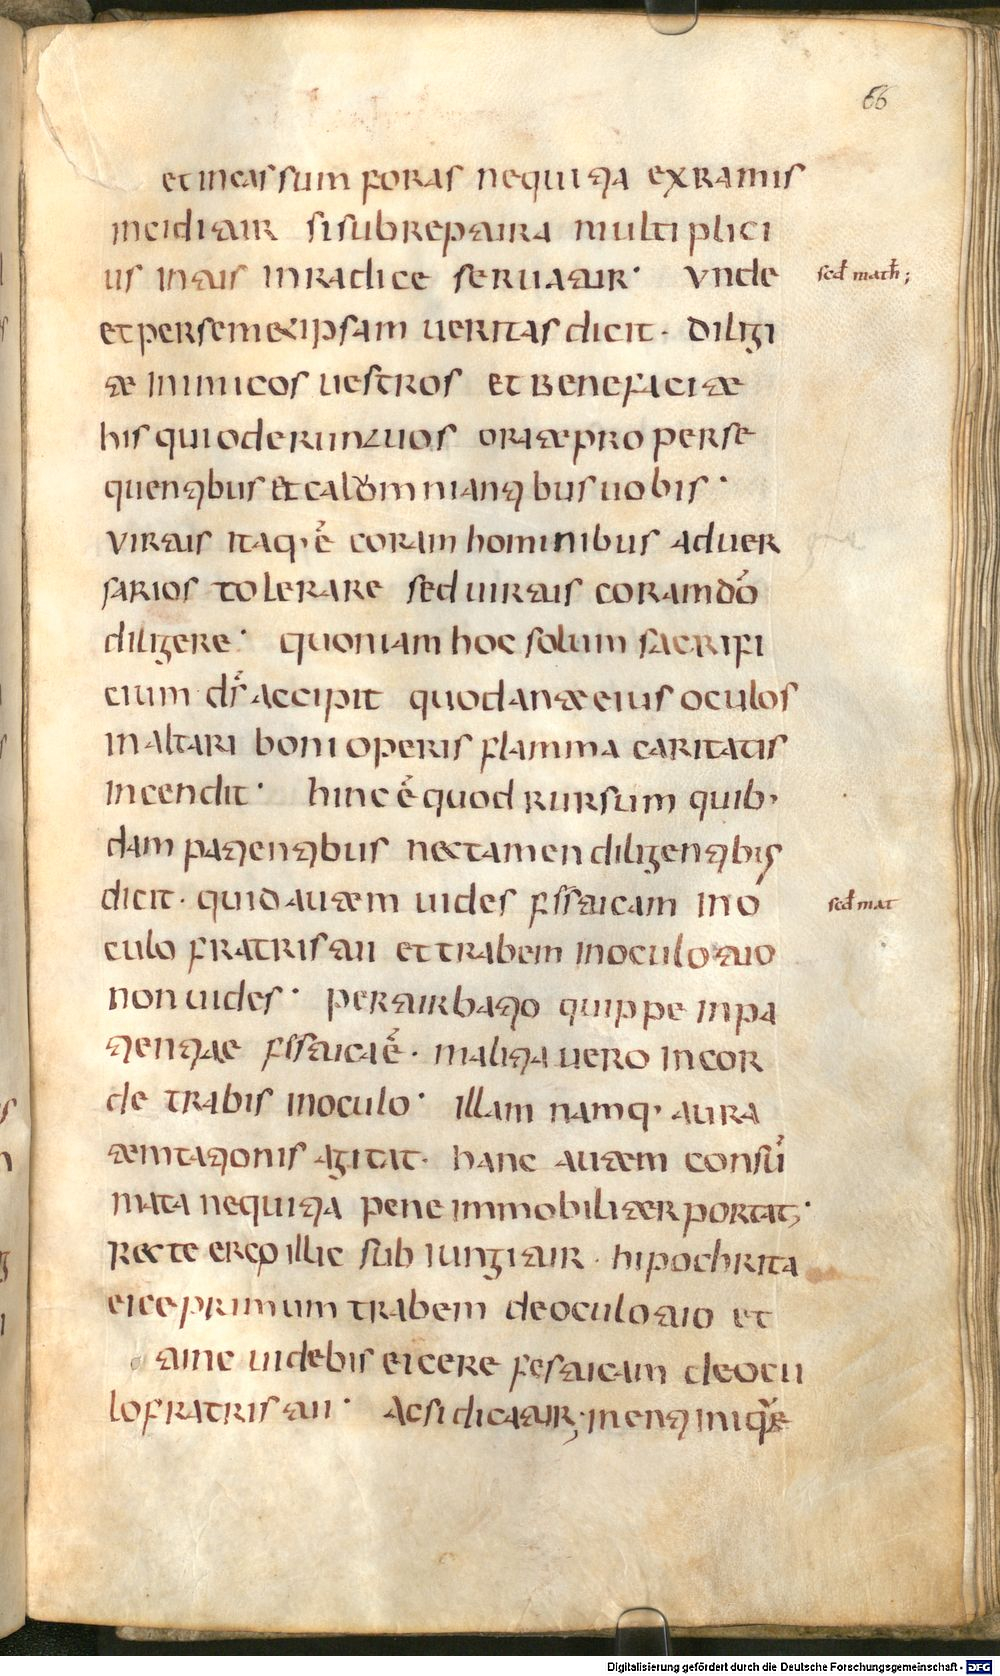 66
et incassum foras nequitia ex ramis
inciditur si subrepatura multiplici
us intus in radice seruatur· Vnde
et per semetipsam ueritas dicit· Diligi
te inimicos uestros et benefacite
his qui oderunt uos orate pro perse
quentibus et calomniantibus uobis·
virtus itaq· ē coram hominibus aduer
sarios tolerare sed uirtus coram dō
diligere· quoniam hoc solum sacrifi
cium· ds̄ accipit quod ante eius oculos
in altari boni operis flamma caritatis
incendit· hinc ē quod rursum quib·
dam patientibus nec tamen diligentibus
dicit· quid autem uides fistucam in o
culo fratris tui et trabem in oculo tuo
non uides· perturbatio quippe inpa
tientiae fistuca ē· malitia uero in cor
de trabis in oculo· illam namq· aura
temtationis agitat· hanc autem consū
mata nequitia pene immobiliter portat;·
Recte ergo illic subiungitur· hipochrita
eice primum trabem de oculo tuo et
tunc uidebis eicere festucam de ocu
lo fratris tui· Ac si dicatur; menti iniquę
sed̄ math̄;
sed̄ mat
Digitalisierung gefördert durch die Deutsche Forschungsgemeinschaft - DFG